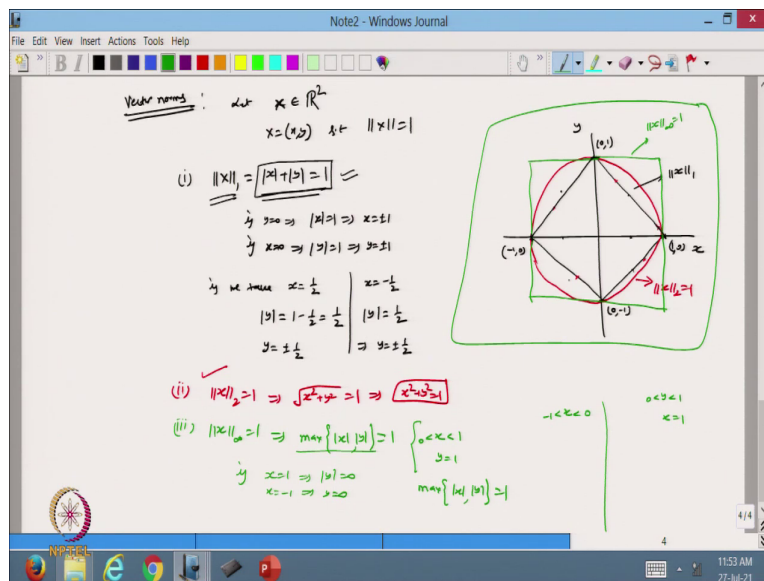 Note2 - Windows Journal
File Edit View Insert Actions Tools Help
Vector norms : Let x ∈ ℝ²
x=(x,y) s.t ||x||=1
(i) ||x||₁ = |x|+|y|=1
if y=0 ⇒ |x|=1 ⇒ x=±1
if x=0 ⇒ |y|=1 ⇒ y=±1
if we take x=1/2
|y|=1-1/2=1/2
y=±1/2
x=-1/2
|y|=1/2
⇒ y=±1/2
(ii) ||x||₂=1 ⇒ √x²+y²=1 ⇒ x²+y²=1
(iii) ||x||∞=1 ⇒ max{|x|,|y|}=1
if x=1 ⇒ |y|=0
x=-1 ⇒ y=0
0<x<1
y=1
max{|x|,|y|}=1
-1<x<0
0<y<1
x=1
y
||x||∞=1
(0,1)
||x||₁
(-1,0)
(1,0)
x
||x||₂=1
(0,-1)
NPTEL
4/4
4
11:53 AM
27-Jul-21